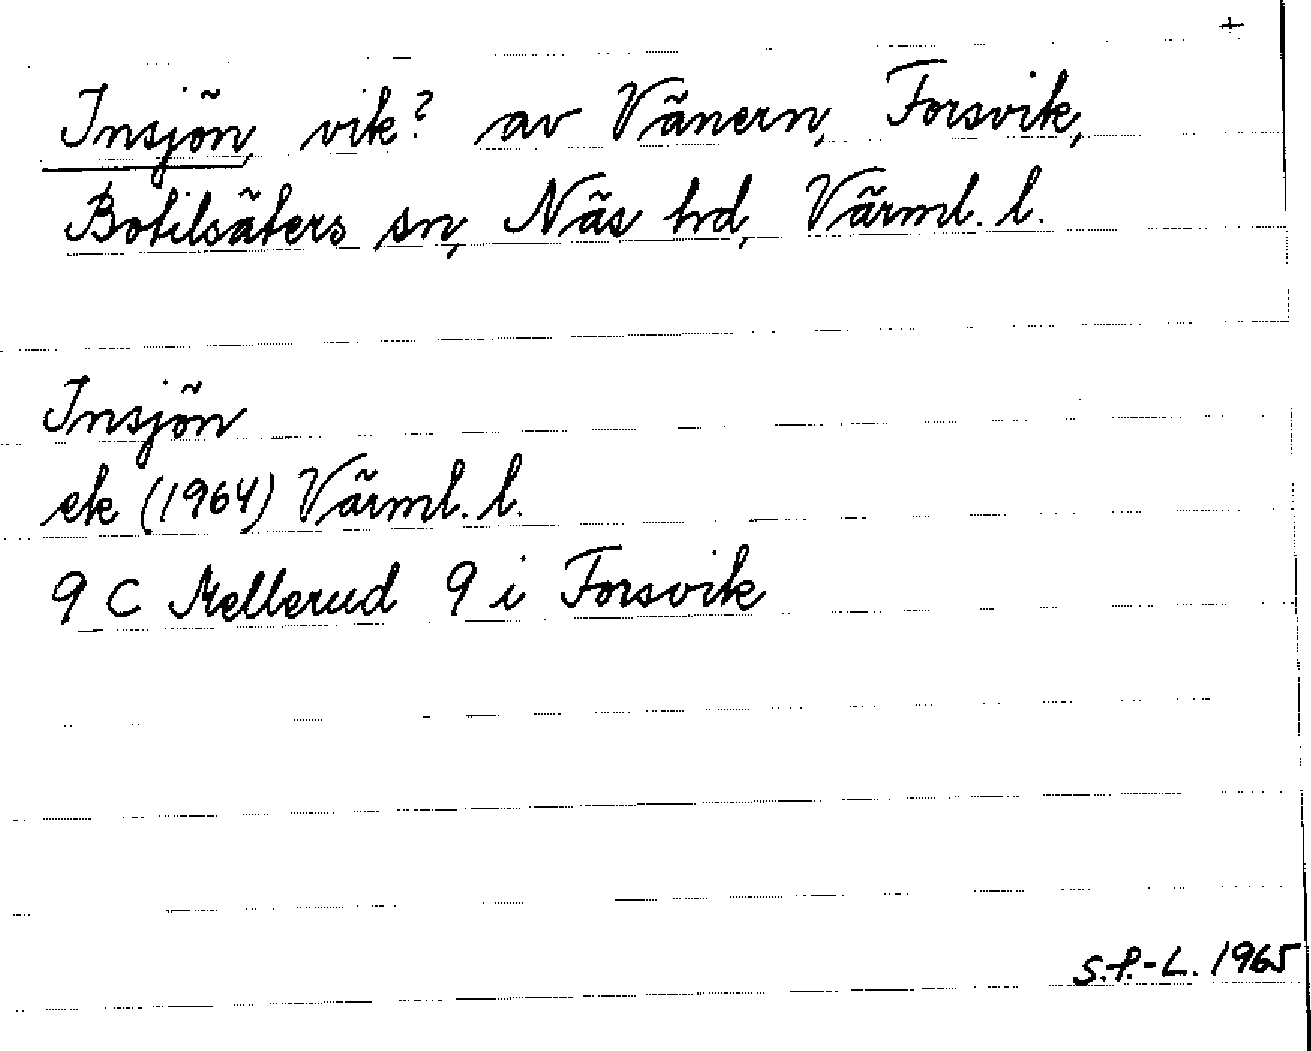 +
Insjön, vik? av Vänern, Forsvik,
Botilsäters sn, Näs hd, Värml. l.
Insjön
ek (1964) Värml. l.
9 C Mellerud 9 i Forsvik
S.P.-L. 1965